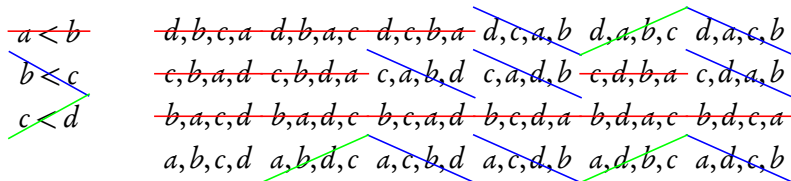 a < b d,b,c,a d,b,a,c d,c,b,a d,c,a,b d,a,b,c d,a,c,b
b < c c,b,a,d c,b,d,a c,a,b,d c,a,d,b c,d,b,a c,d,a,b
c < d b,a,c,d b,a,d,c b,c,a,d b,c,d,a b,d,a,c b,d,c,a
a,b,c,d a,b,d,c a,c,b,d a,c,d,b a,d,b,c a,d,c,b